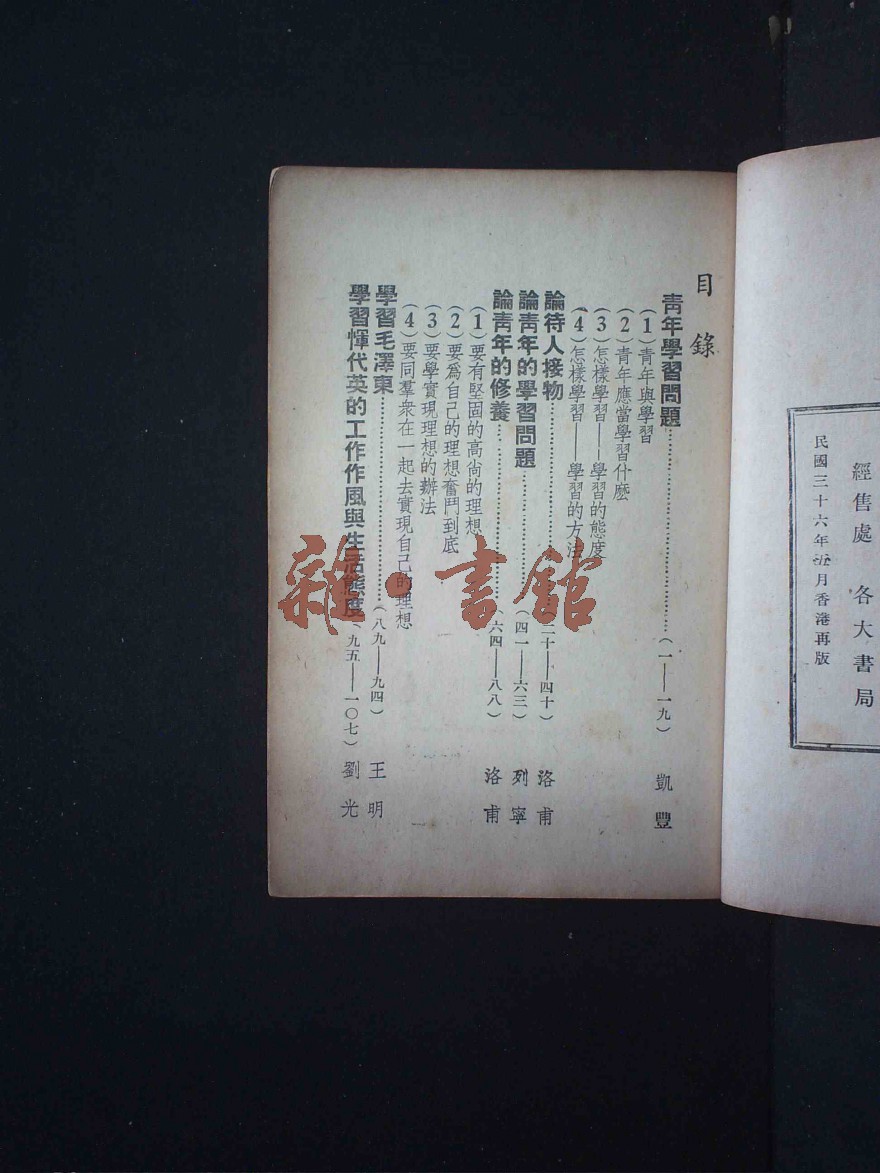 經售處 各大書局
民國三十六年五月香港再版
目錄
青年學習問題……(一——一九) 凱豐
(1)青年與學習
(2)青年應當學習什麽
(3)怎樣學習——學習的態度
(4)怎樣學習——學習的方法
論待人接物……(二十——四十) 洛甫
論青年的學習問題……(四一——六三) 列寧
論青年的修養……(六四——八八) 洛甫
(1)要有堅固的高尚的理想
(2)要爲自己的理想奮鬥到底
(3)要學實現理想的辦法
(4)要同羣衆在一起去實現自己的理想
學習毛澤東……(八九——九四) 王明
學習惲代英的工作作風與生活態度(九五——一〇七) 劉光
雜·書館